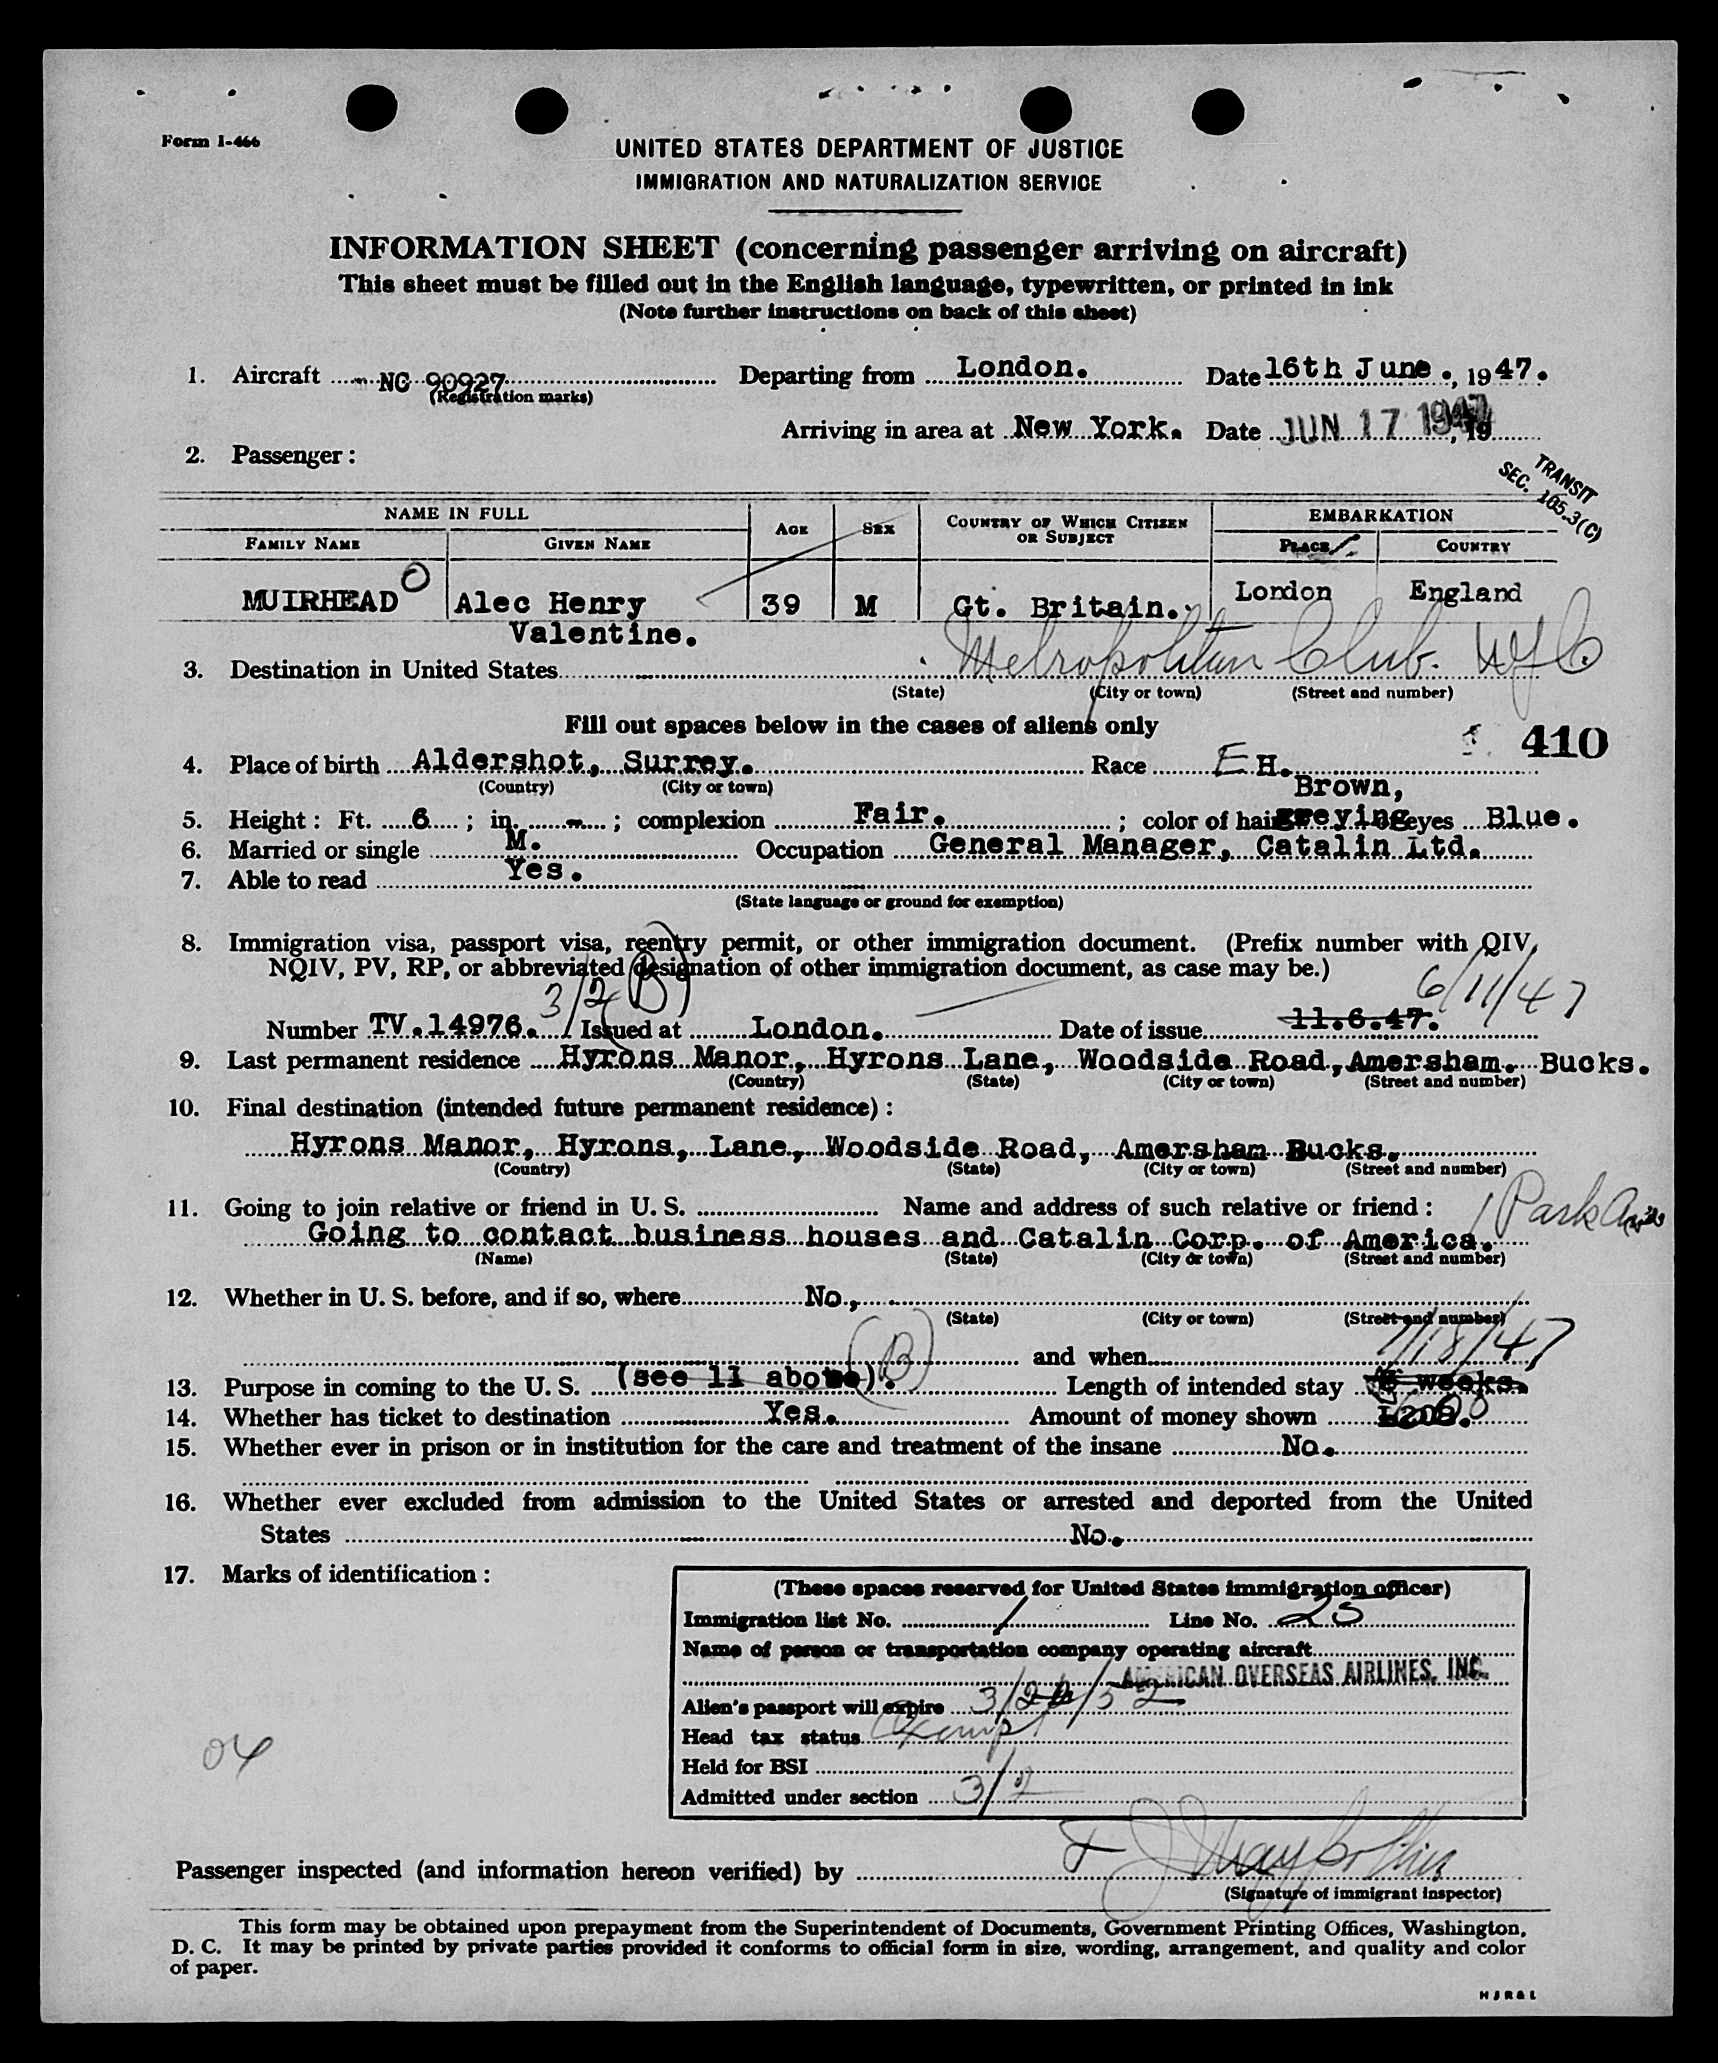 Form I-466
UNITED STATES DEPARTMENT OF JUSTICE
IMMIGRATION AND NATURALIZATION SERVICE
INFORMATION SHEET (concerning passenger arriving on aircraft)
This sheet must be filled out in the English language, typewritten, or printed in ink
(Note further instructions on back of this sheet)
1. Aircraft NC 90927 Departing from London. Date 16th June., 1947.
(Registration marks)
Arriving in area at New York. Date JUN 17 1947, 19
2. Passenger:
TRANSIT
SEC. 165.3(C)
NAME IN FULL AGE SEX COUNTRY OF WHICH CITIZEN OR SUBJECT EMBARKATION
FAMILY NAME GIVEN NAME PLACE COUNTRY
MUIRHEAD Alec Henry 39 M Gt. Britain. London England
Valentine.
3. Destination in United States Metropolitan Club. NYC
(State) (City or town) (Street and number)
Fill out spaces below in the cases of aliens only
410
4. Place of birth Aldershot, Surrey. Race E H.
(Country) (City or town)
Brown,
5. Height: Ft. 6; in. -; complexion Fair.; color of hair greying eyes Blue.
6. Married or single M. Occupation General Manager, Catalin Ltd.
7. Able to read Yes.
(State language or ground for exemption)
8. Immigration visa, passport visa, reentry permit, or other immigration document. (Prefix number with QIV,
NQIV, PV, RP, or abbreviated designation of other immigration document, as case may be.)
3/2 (B) 6/11/47
Number TV.14976. Issued at London. Date of issue 11.6.47.
9. Last permanent residence Hyrons Manor, Hyrons Lane, Woodside Road, Amersham. Bucks.
(Country) (State) (City or town) (Street and number)
10. Final destination (intended future permanent residence):
Hyrons Manor, Hyrons, Lane, Woodside Road, Amersham Bucks.
(Country) (State) (City or town) (Street and number)
11. Going to join relative or friend in U. S. Name and address of such relative or friend:
1 Park
Going to contact business houses and Catalin Corp. of America.
(Name) (State) (City or town) (Street and number)
12. Whether in U. S. before, and if so, where No,
(State) (City or town) (Street and number)
and when
(B) 7/18/47
13. Purpose in coming to the U. S. (see 11 above). Length of intended stay weeks.
14. Whether has ticket to destination Yes. Amount of money shown
15. Whether ever in prison or in institution for the care and treatment of the insane No.
16. Whether ever excluded from admission to the United States or arrested and deported from the United
States No.
17. Marks of identification:
(These spaces reserved for United States immigration officer)
Immigration list No. / Line No. 25
Name of person or transportation company operating aircraft
AMERICAN OVERSEAS AIRLINES, INC.
Alien's passport will expire 3/22/52
Head tax status Exempt
Held for BSI
Admitted under section 3/2
04
Passenger inspected (and information hereon verified) by
(Signature of immigrant inspector)
This form may be obtained upon prepayment from the Superintendent of Documents, Government Printing Offices, Washington,
D. C. It may be printed by private parties provided it conforms to official form in size, wording, arrangement, and quality and color
of paper.
H J R & L